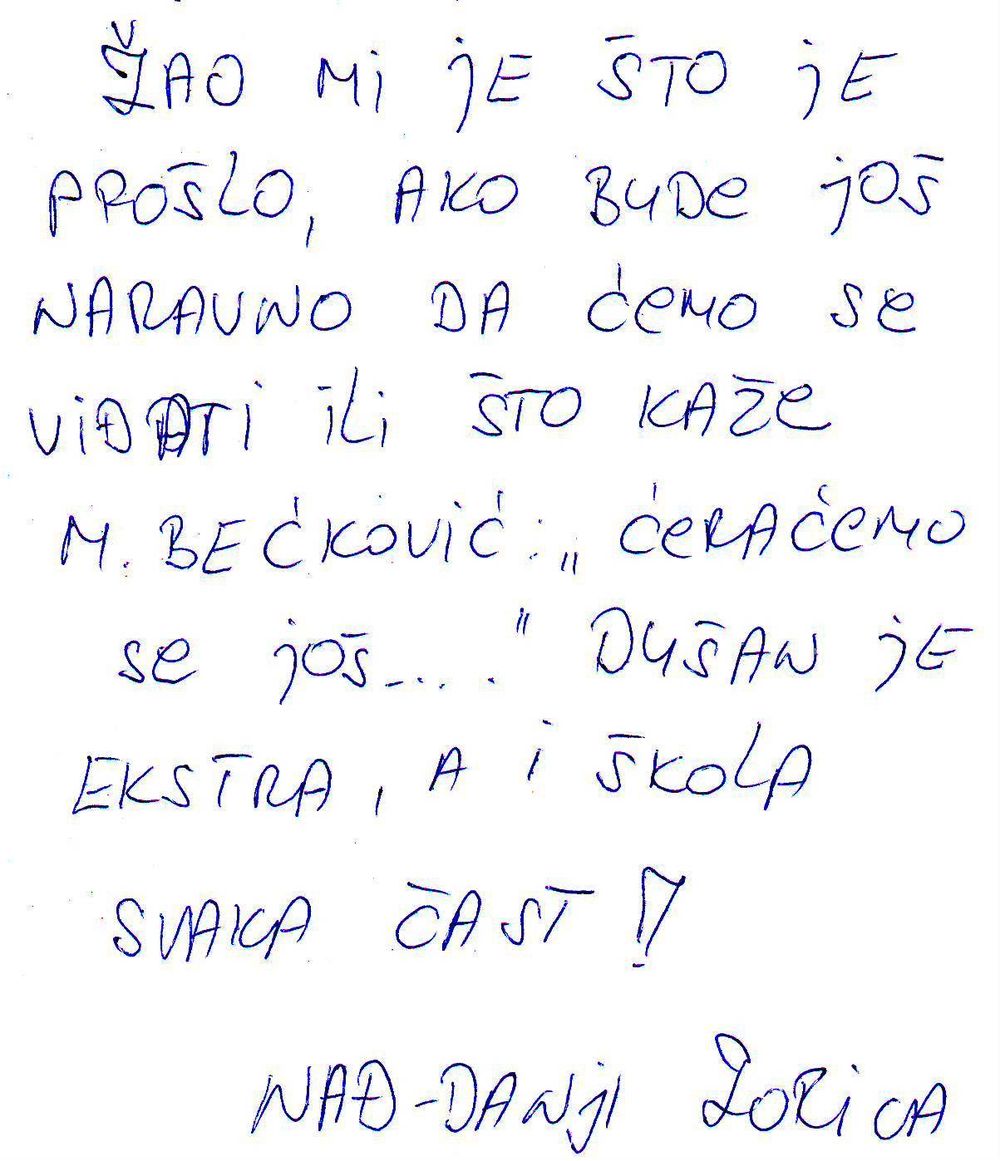 ŽAO Mi jE ŠTO jE
PROŠLO, AKO BUDe jOŠ
NARAVNO DA ćeMO Se
ViĐATi iLi ŠTO KAŽe
M. BEĆKOViĆ: „ĆeRAĆeMO
Se jOŠ...." DUŠAN jE
EKSTRA, A i ŠKOLA
SVAKA ČAST!!
NAĐ-DANji ZORiCA